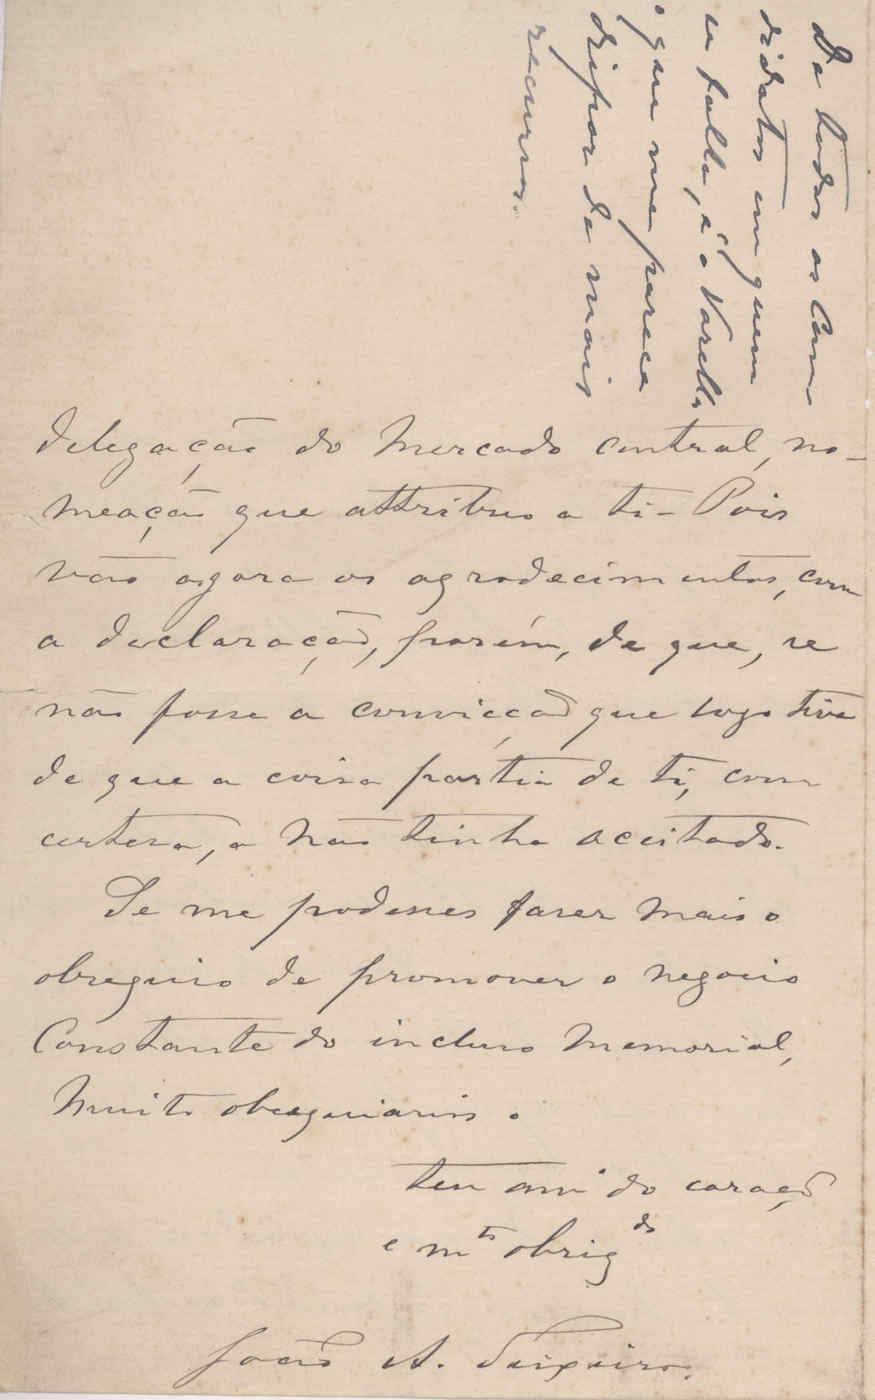 delegação do Mercado central, no-
meação que attribuo a ti - Pois
vão agora os agradecimentos, com
a declaração, porém, de que, se
não fosse a convicção que logo tive
de que a coisa partia de ti, com
certesa, a não tinha aceitado.
Se me podesses faser mais o
obsequio de promover o negocio
Constante do incluso Memorial,
Muito obsequiarias o
teu amº do coração
e mto obrigdo
João A. Teixeira.
De todos os Can-
didatos em quem
se falla, é o Varella
o que me parece
dispor de mais
recursos.